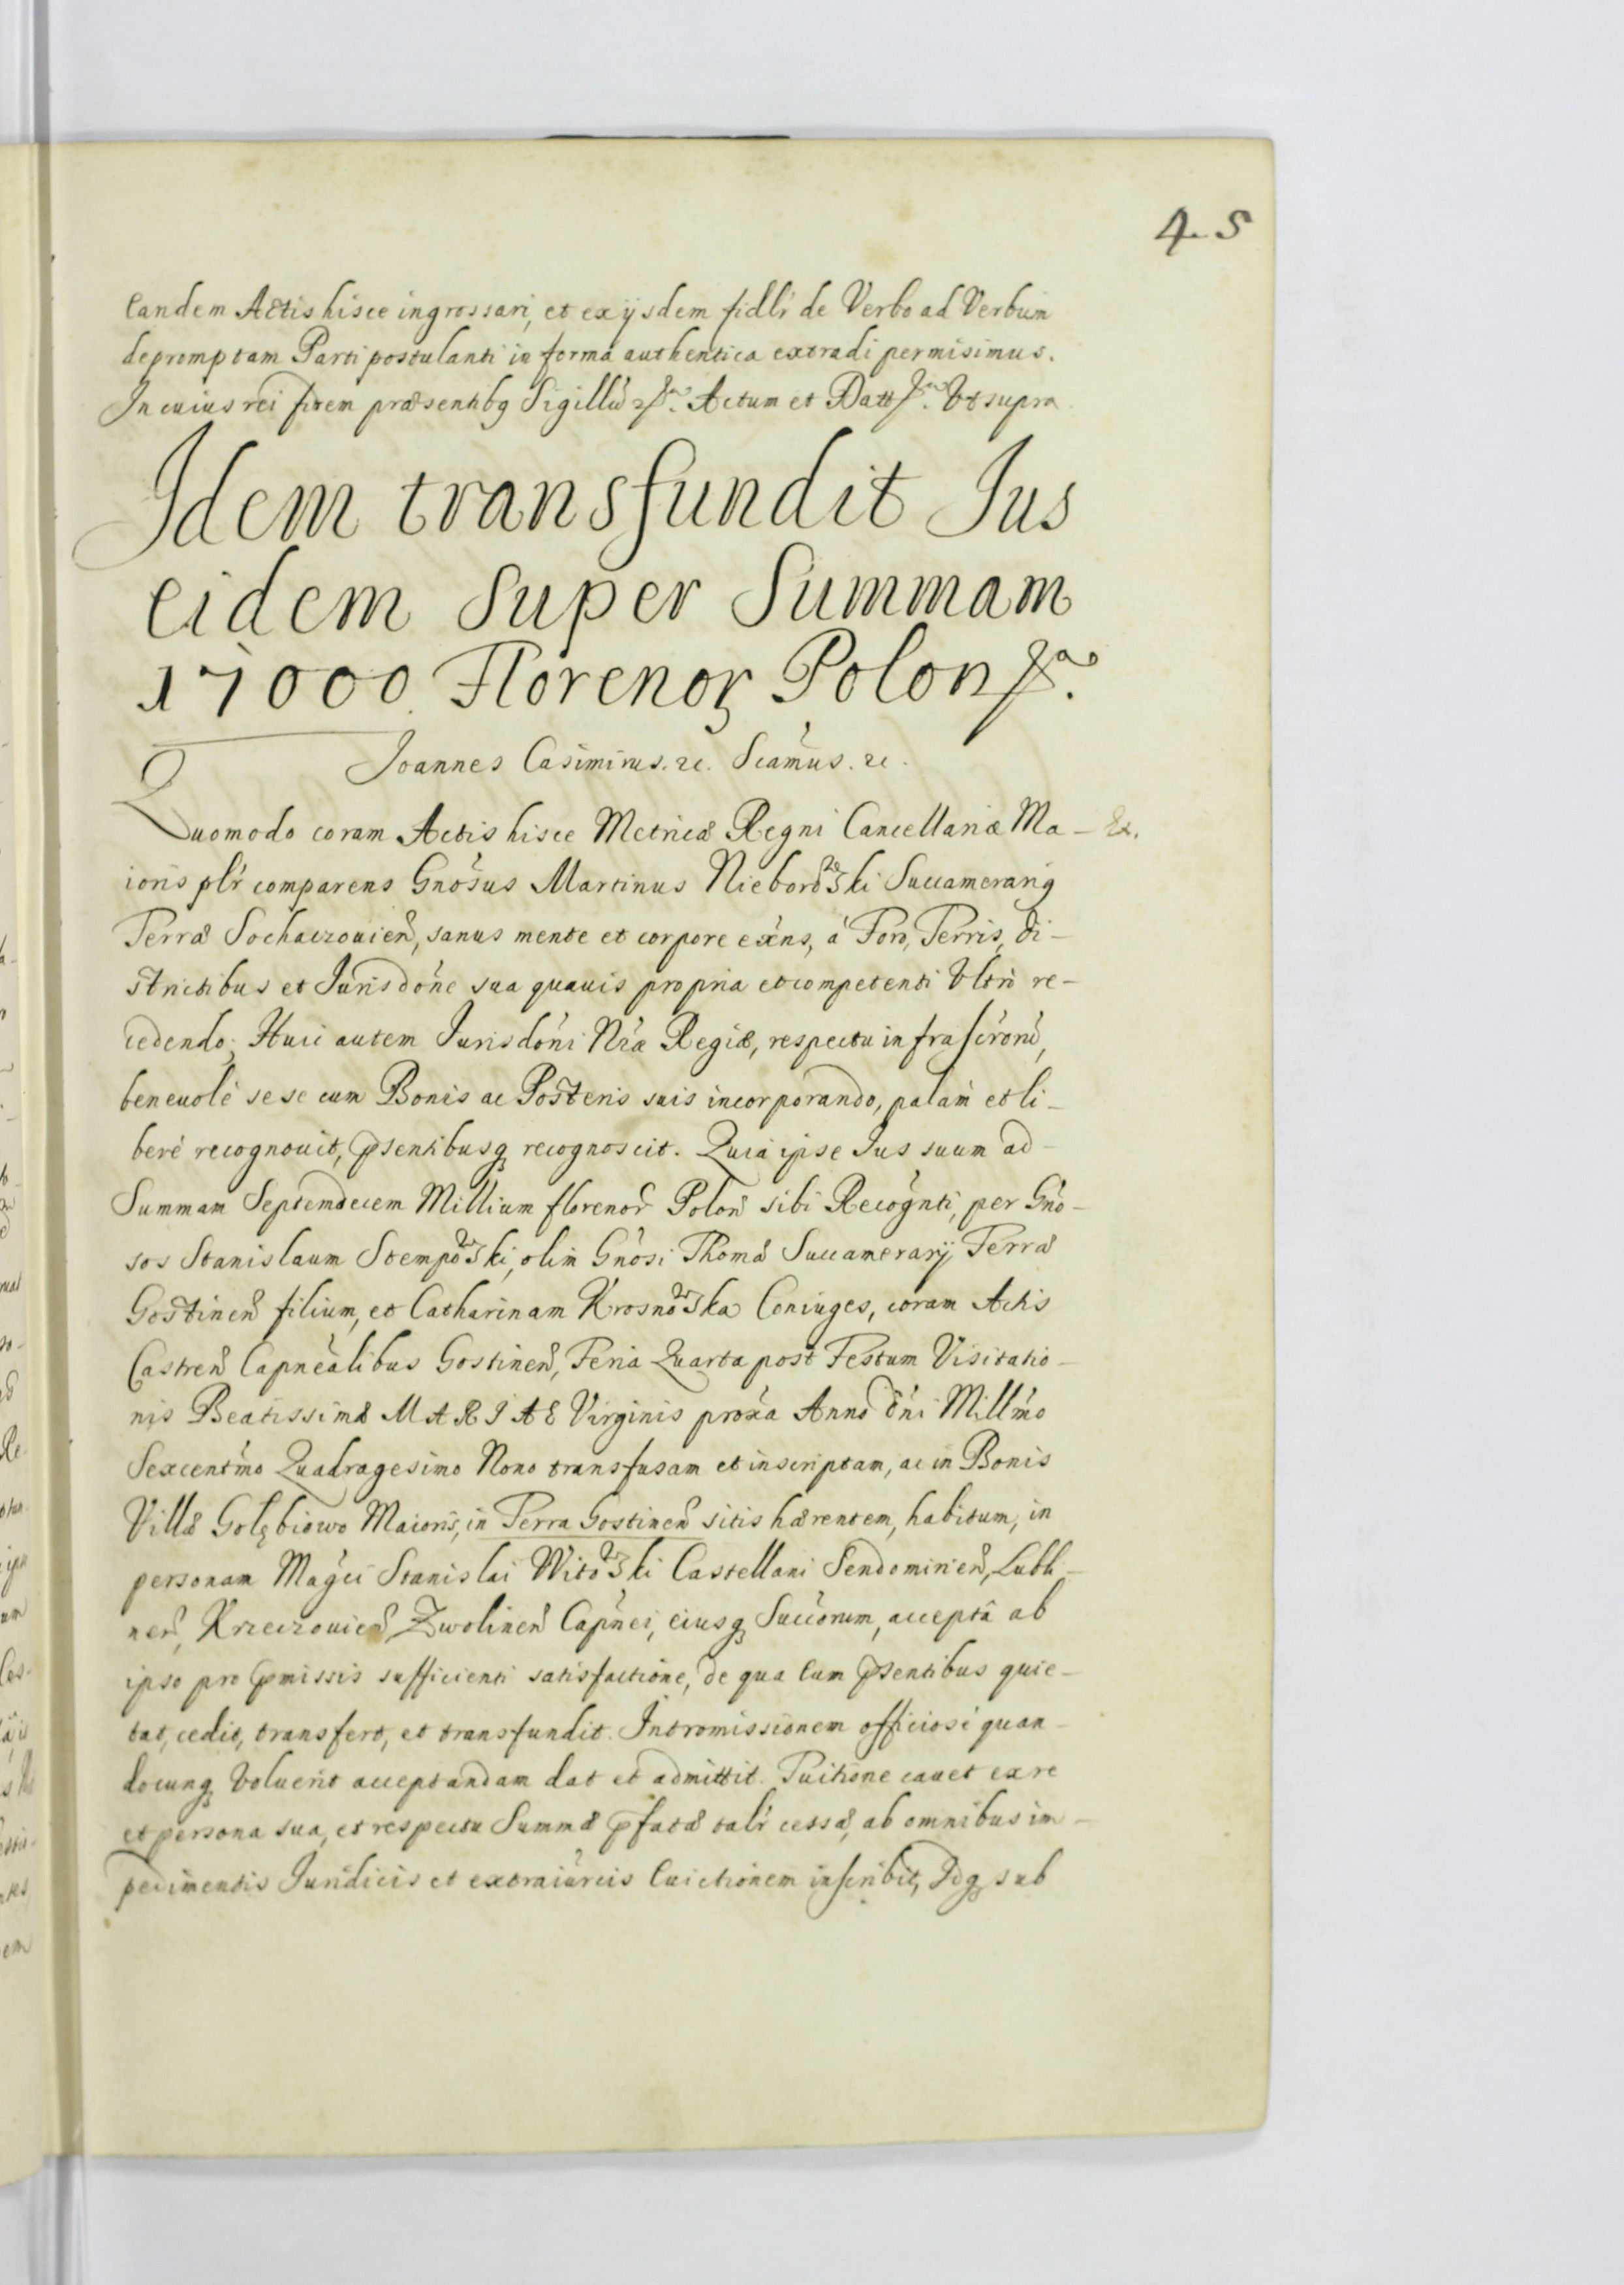 4. 5
eandem Actis hisce ingrossari, et ex ijsdem fidlr de Verbo ad Verbum
depromptam Parti postulanti in forma authentica extradi permisimus.
In cuius rei fidem præsentibq Sigillũ &c. Actum et Datt &c. Vt supra
Idem transfundit Jus
eidem super Summam
17000 Florenoꝝ Polon &c.
Joannes Casimirus. &c. Scam̃us. &c.
Quomodo coram Actis hisce Metricæ Regni Cancellariæ Ma- Ex.
ioris plr comparens Gnosus Martinus Nieborowski Succamerariq
Terræ Sochaczouien, sanus mente et corpore exñs, à Foro, Terris, di-
strictibus et Jurisdone sua quauis propria et competenti Vltrò re-
cedendo; Huic autem Jurisdoni Nræ Regiæ, respectu infrascrorũ,
beneuolè sese cum Bonis ac Posteris suis incorporando, palàm et li-
berè recognouit, p̃sentibusq recognoscit. Quia ipse Jus suum ad
Summam Septemdecem Millium florenor Polon sibi Recognti, per Gno-
sos Stanislaum Stempowski, olim Gnosi Thomæ Succamerarij Terræ
Gostinen filium, et Catharinam Krosnowska Coniuges, coram Actis
Castren Capnealibus Gostinen, Feria Quarta post Festum Visitatio-
nis Beatissimæ MARIAE Virginis proxa Anno Dni Millmo
Sexcentmo Quadragesimo Nono transfusam et inscriptam, ac in Bonis
Villæ Golębiowo Maioris, in Terra Gostinen sitis hærentem, habitum, in
personam Magci Stanislai Witowski Castellani Sendomirien, Lubli-
nen, Krzeczouien Zwolinen Capnei, eiusq Succorum, acceptâ ab
ipso pro p̃missis sufficienti satisfactione, de qua Eum p̃sentibus quie-
tat, cedit, transfert, et transfundit. Intromissionem officiosè quan-
docunq Voluerit acceptandam dat et admittit. Tuitione cauet ex re
et persona sua, et respectu Summæ p̃fatæ talr cessæ, ab omnibus im-
pedimentis Juridicis et extraiurcis Euictionem inscribit, Idq sub